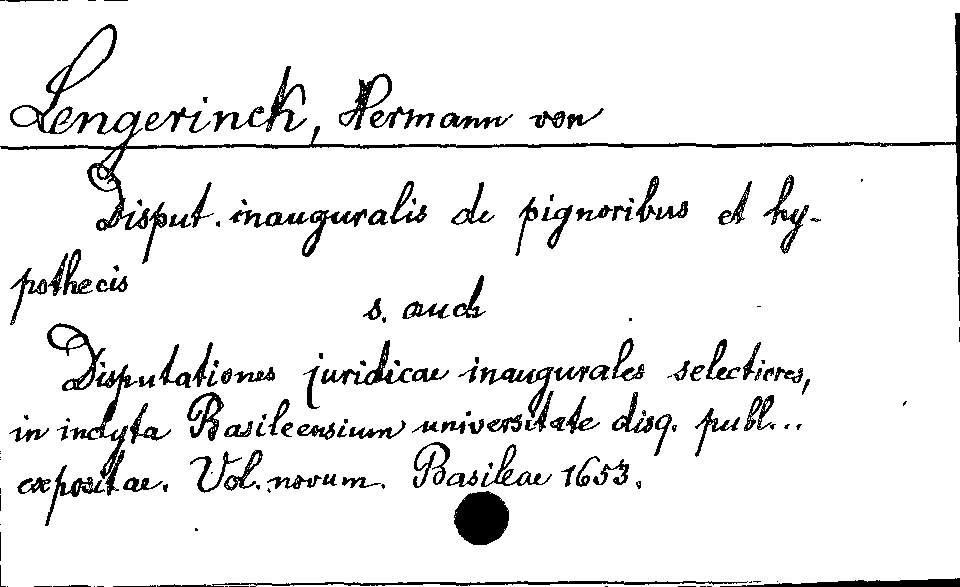 Lengerinck, Hermann von
Disput. inauguralis de pignoribus et hy-
pothecis
s. auch
Disputationes juridicae inaugurales selectiores,
in inclyta Basileensium universitate disq. publ...
expositae. Vol. novum. Basileae 1653.